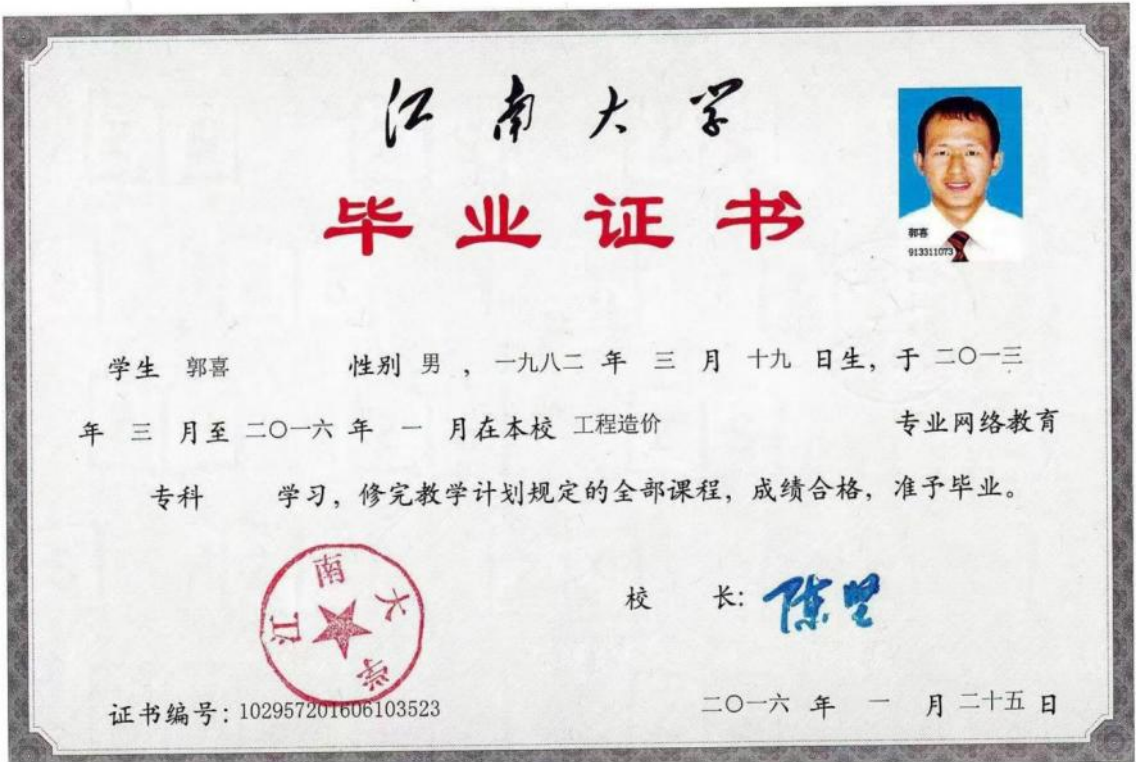 江南大学
毕业证书
郭喜
913311073
学生 郭喜 性别 男 , 一九八二 年 三 月 十九 日生, 于 二〇一三
年 三 月至 二〇一六 年 一 月在本校 工程造价 专业网络教育
专科 学习, 修完教学计划规定的全部课程, 成绩合格, 准予毕业。
江南大学
校 长: 陈坚
证书编号: 102957201606103523
二〇一六 年 一 月 二十五 日